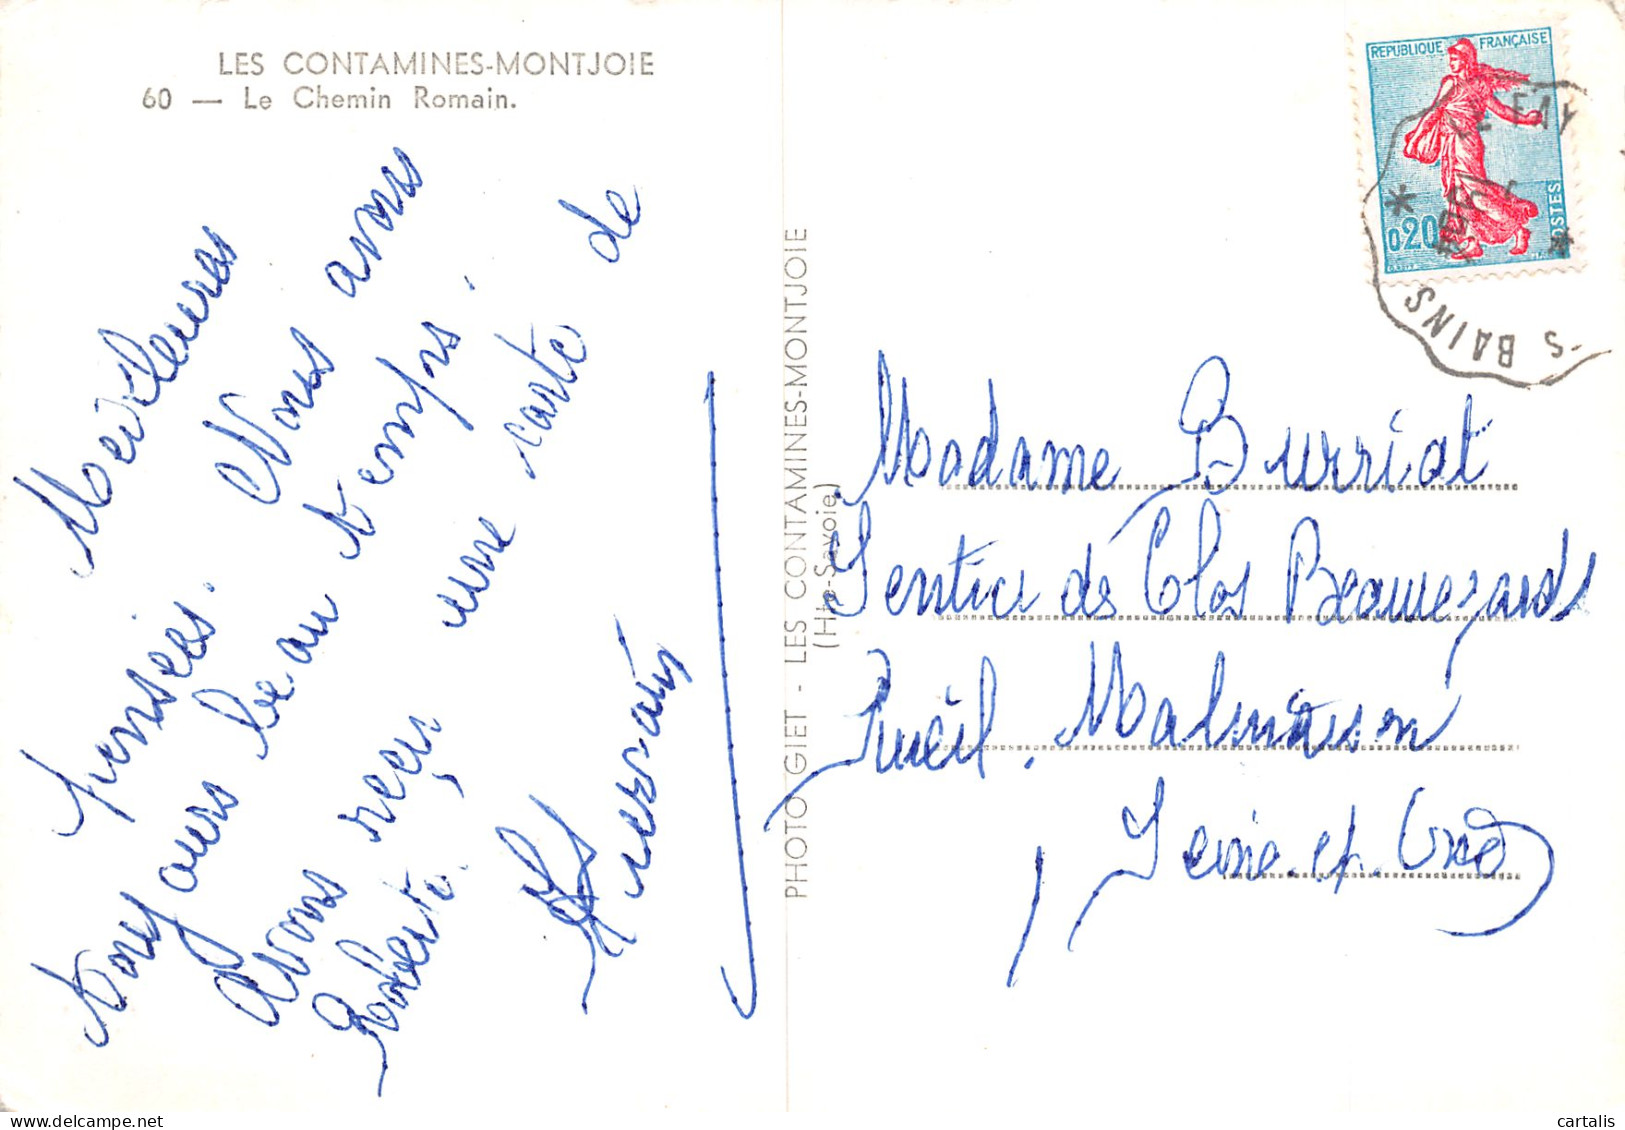 LES CONTAMINES-MONTJOIE
60 — Le Chemin Romain.
Meilleures
pensées. Nous avons
toujours beau temps.
Avons reçu une carte de
Roberte.
PHOTO GIET - LES CONTAMINES-MONTJOIE
(Hte-Savoie)
REPUBLIQUE FRANÇAISE
0,20
POSTES
LE FAY
S BAINS
Madame Burriat
Sentier de Clos Beauregards
Rueil. Malmaison
Seine et Oise
cartalis